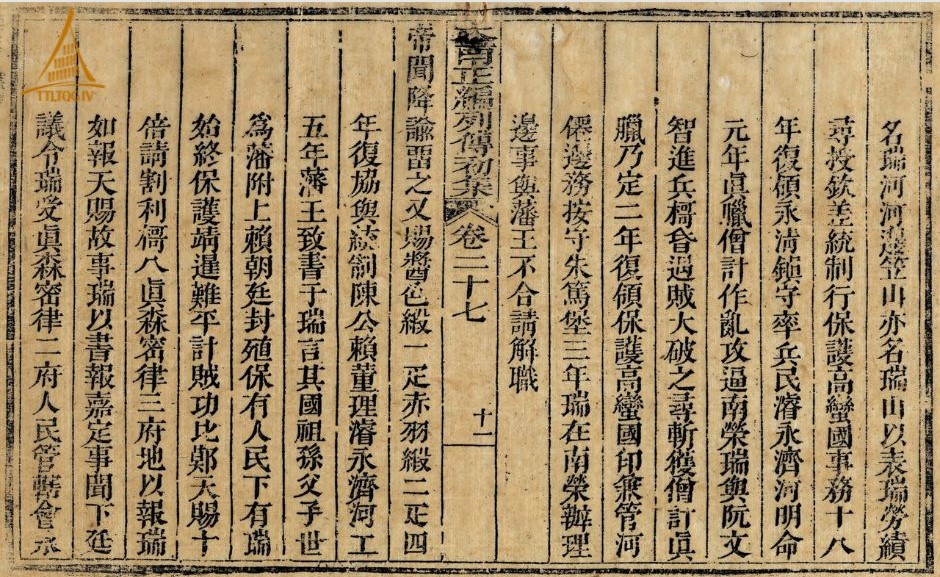 TTLTQG.IV
名瑞河河邊笠山亦名瑞山以表瑞勞績
尋授欽差統制行保護高蠻國事務十八
年復領永清鎮守率兵民濬永濟河明命
元年眞臘僧計作亂攻逼南榮瑞與阮文
智進兵㯖沓遇賊大破之尋斬獲僧計眞
臘乃定二年復領保護高蠻國印兼管河
僊邊務按守朱篤堡三年瑞在南榮辦理
邊事與藩王不合請解職
大南正編列傳初集 卷二十七 十二
帝聞降諭畱之又賜醬色緞一疋赤羽緞二疋四
年復協與統制陳公賴董理濬永濟河工
五年藩王致書于瑞言其國祖孫父子世
爲藩附上賴朝廷封殖保有人民下有瑞
始終保護靖暹難平計賊功比鄭天賜十
倍請割利㯖八眞森密律三府地以報瑞
如報天賜故事瑞以書報嘉定事聞下廷
議令瑞受眞森密律二府人民管轄會永